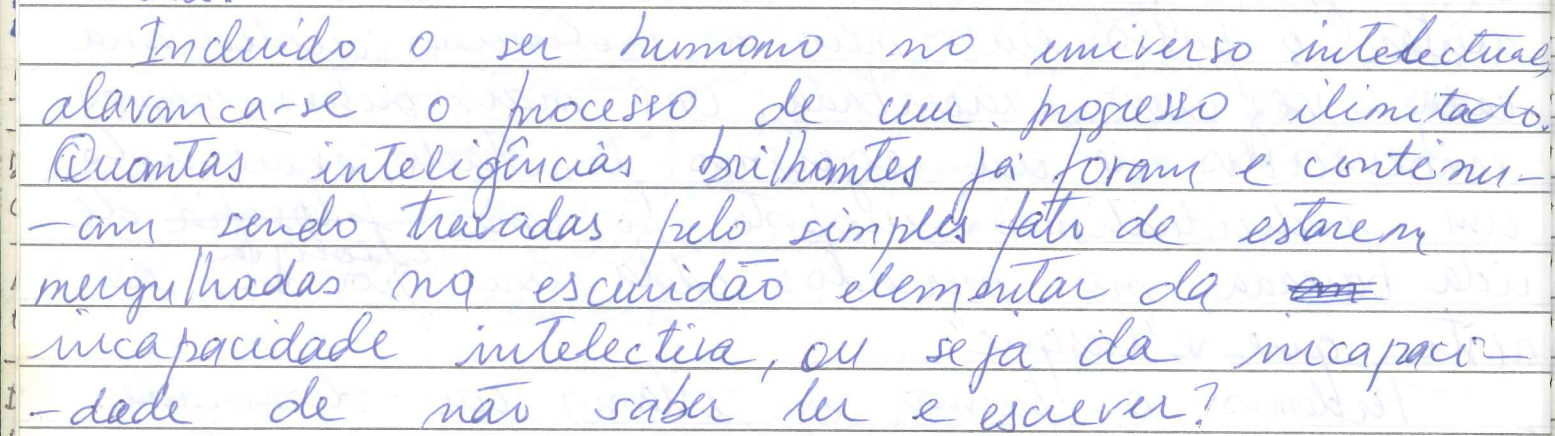 Incluído o ser humano no universo intelectual,
alavanca-se o processo de um progresso ilimitado.
Quantas inteligências brilhantes já foram e continu-
-am sendo travadas pelo simples fato de estarem
mergulhadas na escuridão elementar da
incapacidade intelectiva, ou seja da incapaci-
-dade de não saber ler e escrever?